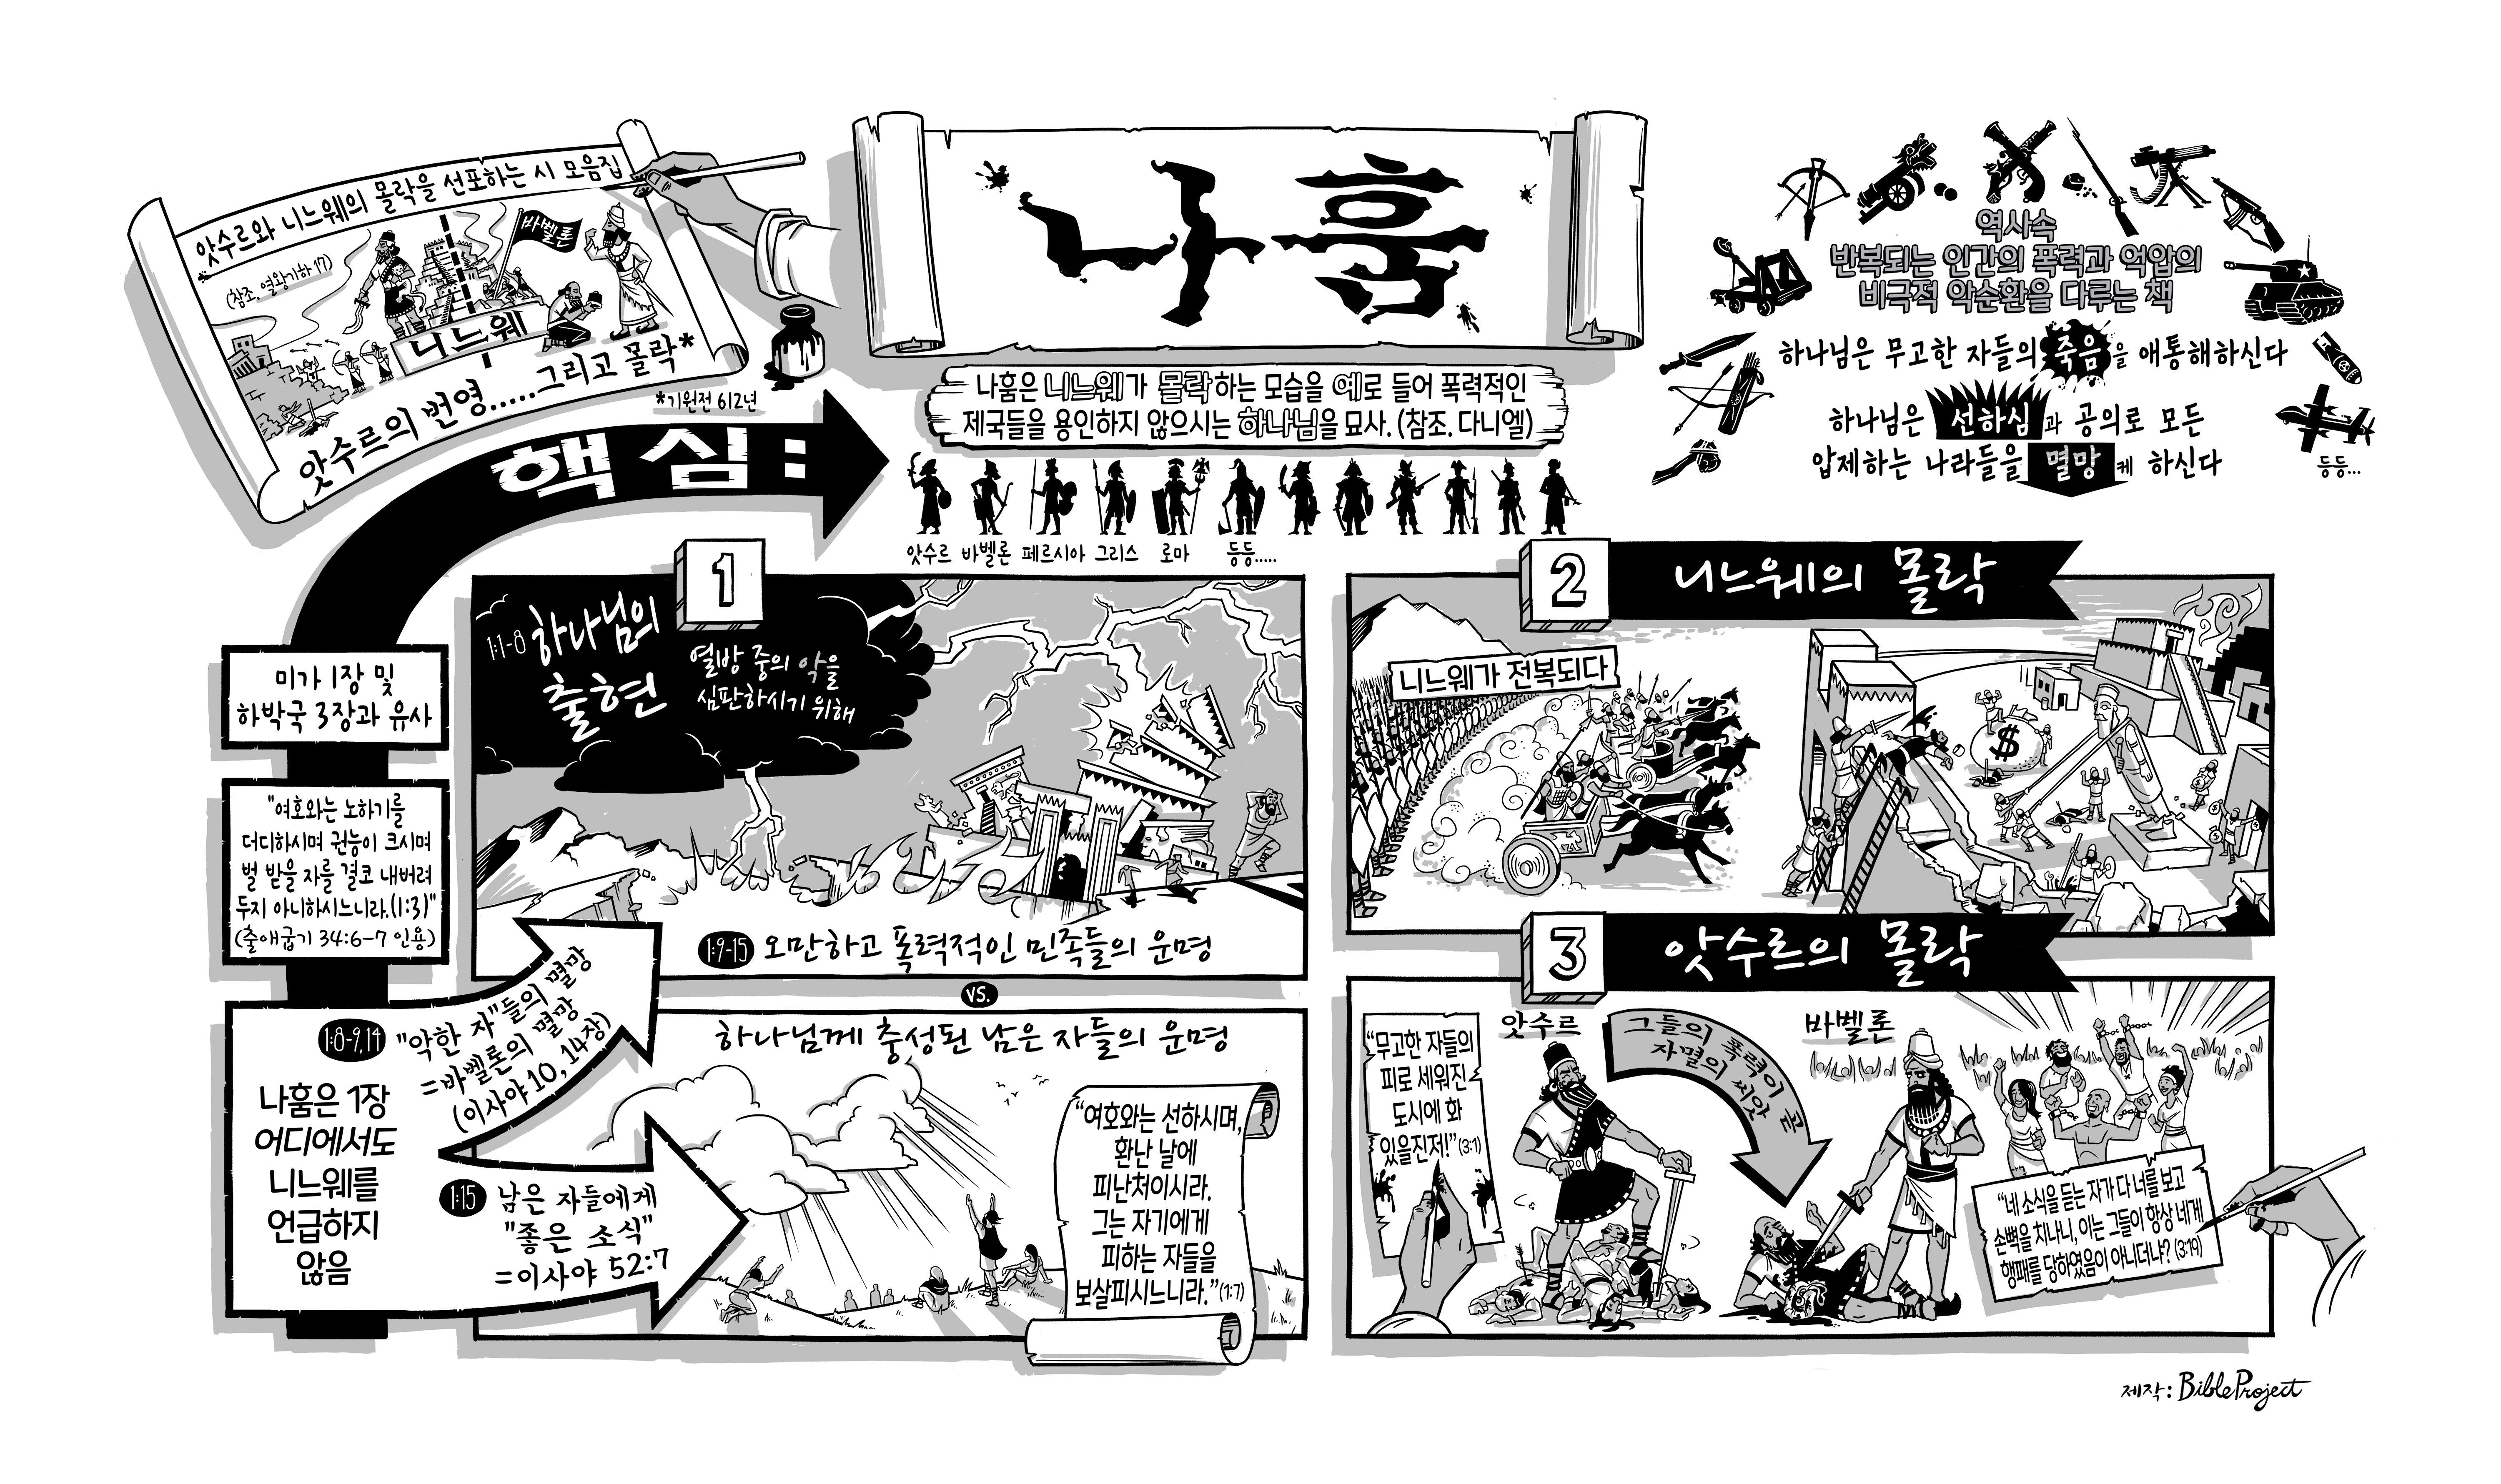 앗수르와 니느웨의 몰락을 선포하는 시 모음집
(참조, 열왕기하 17)
바벨론
니느웨
앗수르의 번영.....그리고 몰락*
*기원전 612년
나훔
핵심:
나훔은 니느웨가 몰락하는 모습을 예로 들어 폭력적인
제국들을 용인하지 않으시는 하나님을 묘사. (참조. 다니엘)
앗수르 바벨론 페르시아 그리스 로마 등등.....
역사속
반복되는 인간의 폭력과 억압의
비극적 악순환을 다루는 책
하나님은 무고한 자들의 죽음을 애통해하신다
하나님은 선하심과 공의로 모든
압제하는 나라들을 멸망케 하신다
등등...
미가 1장 및
하박국 3장과 유사
"여호와는 노하기를
더디하시며 권능이 크시며
벌 받을 자를 결코 내버려
두지 아니하시느니라.(1:3)"
(출애굽기 34:6-7 인용)
나훔은 1장
어디에서도
니느웨를
언급하지
않음
1:8-9,14
"악한 자"들의 멸망
=바벨론의 멸망
(이사야 10, 14장)
1:15
남은 자들에게
"좋은 소식"
=이사야 52:7
1
1:1-8 하나님의
출현
열방 중의 악을
심판하시기 위해
1:9-15 오만하고 폭력적인 민족들의 운명
VS.
하나님께 충성된 남은 자들의 운명
“여호와는 선하시며,
환난 날에
피난처이시라.
그는 자기에게
피하는 자들을
보살피시느니라.” (1:7)
2
니느웨의 몰락
니느웨가 전복되다
$
3
앗수르의 몰락
“무고한 자들의
피로 세워진
도시에 화
있을진저!” (3:1)
앗수르
그들의 폭력이 곧
자멸의 씨앗
바벨론
“네 소식을 듣는 자가 다 너를 보고
손뼉을 치나니, 이는 그들이 항상 네게
행패를 당하였음이 아니더냐? (3:19)
제작: BibleProject